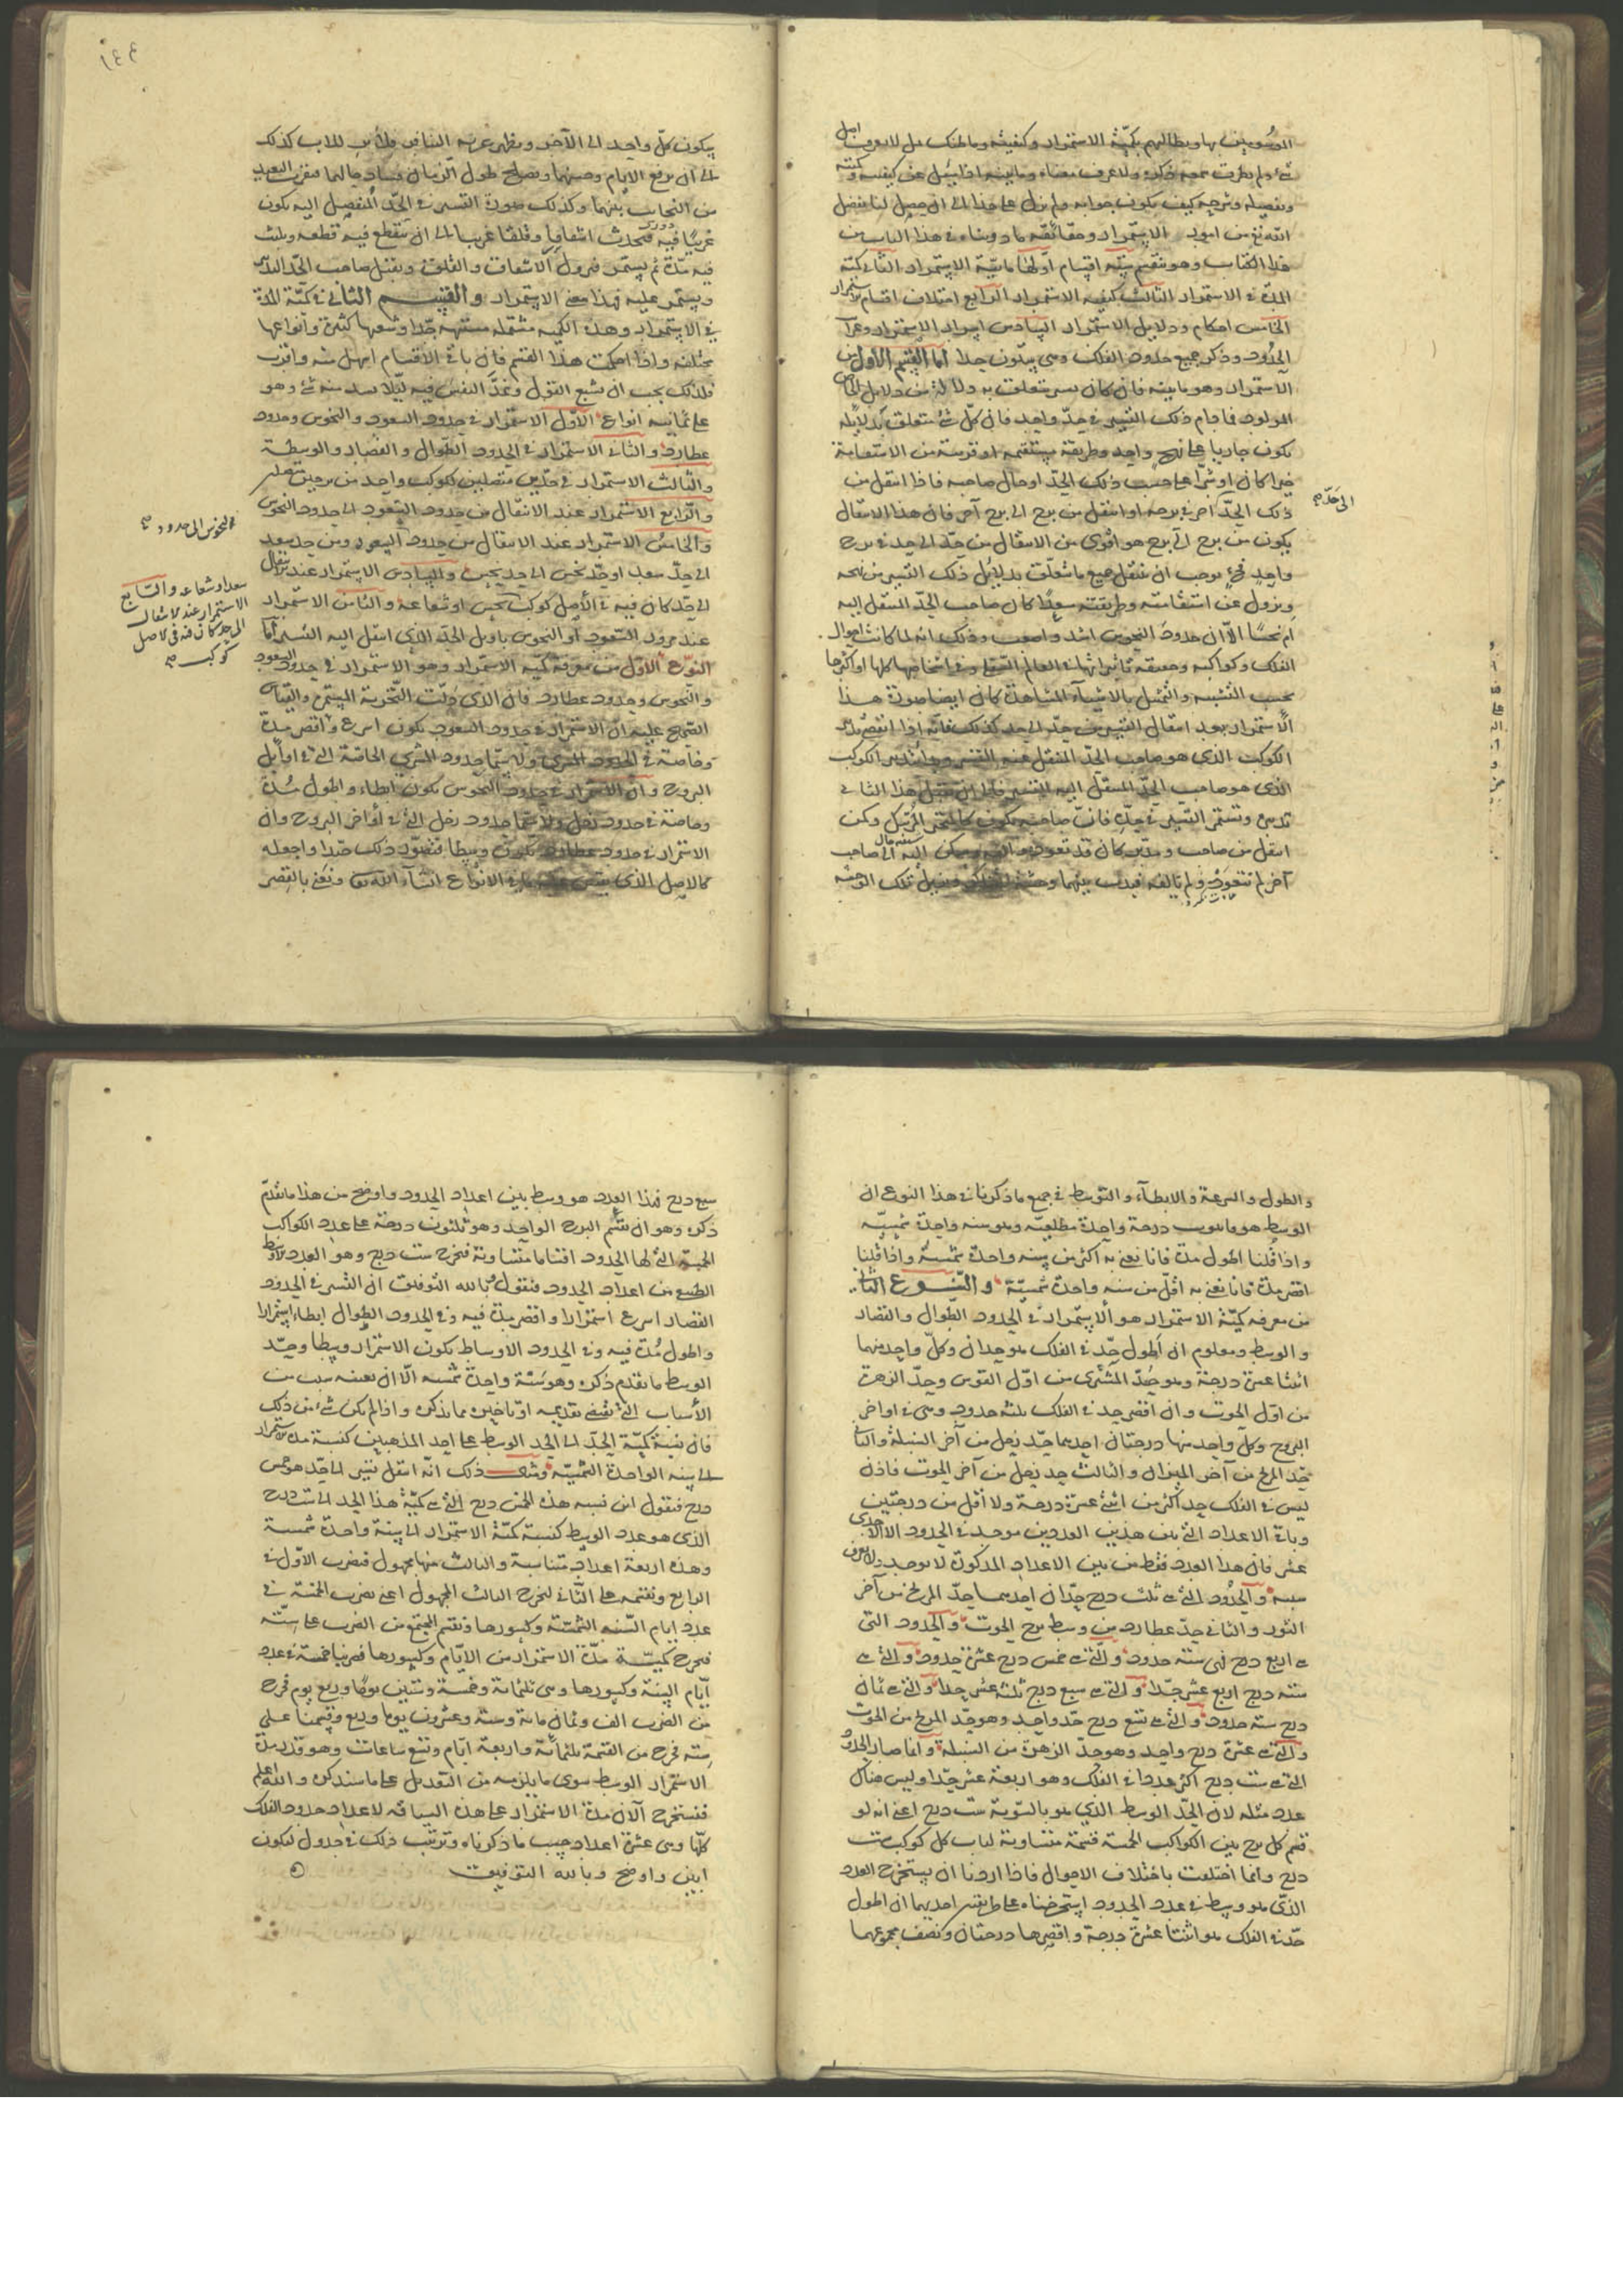 الموسومين بها ويطالبهم بكمية الاستمرار وكيفيته وما هناك من لا يعرف اصل
شئ ولم يطرق سمعه ذكره ولا عرف معناه وماهيته اذا سئل عن كيفيته وكميته
وتفصيله وشرحه كيف يكون جوابه ولم نزل على هذا الى ان حصل لنا بفضل
الله من امور الاستمرار وحقائقه ما دوناه في هذا الباب من
هذا الكتاب وهو ينقسم ستة اقسام اولها ماهية الاستمرار الثاني كمية
المدة في الاستمرار الثالث كيفية الاستمرار الرابع اختلاف اقسام الاستمرار
الخامس احكام ودلايل الاستمرار السادس اسرار الاستمرار
الحدود وذكر جميع حدود الفلك وهي ستون حدا اما القسم الاول من
الاستمرار وهو ماهيته فان كان تسير متعلق به دلالة من دلايل
المولود فما دام ذلك التسيير في حد واحد فان كل شئ متعلق بدلايله
يكون جاريا على نهج واحد وطريقة مستقيمة او قريبة من الاستقامة
خيرا كان او شرا على حسب ذلك الحد او حال صاحبه فاذا انتقل من
الى حد صح
ذلك الحد آخر في برجه او انتقل من برج الى برج آخر فان هذا الانتقال
يكون من برج الى برج هو اقوى من الانتقال من حد الى حد في برج
واحد يوجب ان ينتقل جميع ما يتعلق بدلايل ذلك التسيير من نهجه
ويزول عن استقامته وطريقته سعدا كان صاحب الحد المنتقل اليه
ام نحسا الا ان حدود النحوس اشد واصعب وذلك انه لما كانت احوال
الفلك وكواكبه وحقيقة تاثيراتها في العالم السفلي وفي اشخاصها كلها او اكثرها
بحسب التشبيه والتمثيل بالاشياء المشاهدة كان ايضا صورة هذا
الاستمرار بعد انتقال التسيير من حد الى حد كذلك فانه اذا انقضى تدبير
الكوكب الذي هو صاحب الحد المنتقل عنه التسيير وجاء تدبير الكوكب
الذي هو صاحب الحد المنتقل اليه التسيير هذا الثاني
تدبير ويستمر التسيير في حده فان صاحبه يكون ومكن
انتقل من صاحب ومدبر كان قد تعود وسكن اليه الى صاحب
آخر لم يتعوده ولم يالفه فيدب بينهما وحشة تلك الوحشة
١٤٤
يكون كل واحد الى الآخر ويظهر عنه التنافر ولا يزال كذلك
الى ان يرفع الايام وحشتهما ويصلح طول الزمان فساد حالهما فيقرب البعيد
من التجانب بينهما وكذلك صورة التسيير في الحد المنفصل اليه يكون
غريبا فيه فيحدث اشفاقا وقلقا غريبا الى ان ينقطع فيه قطعة ويلبث
فيه مدة ثم يستمر فيزول الاشفاق والقلق ويقبل صاحب الحد التدبير
ويستمر عليه فهذا معنى الاستمرار والقسم الثاني في كمية المدة
في الاستمرار وهذه الكمية مشتملة جدا وشعبها كثيرة وانواعها
مختلفة واذا احكمت هذا القسم فان باقي الاقسام اسهل منه واقرب
فلذلك يجب ان نشبع القول ونمد النفس فيه ليلا يشذ منه شئ وهو
على ثمانية انواع الاول الاستمرار في حدود السعود والنحوس وحدود
عطارد والثاني الاستمرار في الحدود الطوال والقصار والوسطة
والثالث الاستمرار في حدين متصلين لكوكب واحد من برجين
والرابع الاستمرار عند الانتقال من حدود السعود الى حدود النحوس
النحوس الى حدود صح
والخامس الاستمرار عند الانتقال من حدود السعود ومن حد سعد
الى حد سعد او حد نحس الى حد نحس والسادس الاستمرار عند الانتقال
سعد او شعاعه والسابع
الاستمرار عند الانتقال
الى حد كان فيه في الاصل
كوكب صح
الى حد كان فيه في الاصل كوكب نحس او شعاعه والثامن الاستمرار
عند مرور السعود او النحوس باوايل الحد الذي انتقل اليه التسيير اما
النوع الاول من معرفة كمية الاستمرار وهو الاستمرار في حدود السعود
والنحوس وحدود عطارد فان الذي دلت التجربة المستمرة والقياس
الصحيح عليه ان الاستمرار في حدود السعود يكون اسرع واقصر مدة
وخاصة في الحدود المشتري ولا سيما حدود المشتري الخاصة التي في اوايل
البروج وان الاستمرار في حدود النحوس يكون ابطاء واطول مدة
وخاصة في حدود زحل ولا سيما حدود زحل التي في أواخر البروج وان
الاستمرار في حدود عطارد يكون وسيطا فتصور ذلك جيدا واجعله
كالاصل الذي الانواع انشاء الله تعالى ونعني بالقصر
والطول والسرعة والابطاء والتوسط في جميع ما ذكرنا في هذا النوع ان
الوسط هو درجة واحدة مطلعية وهو سنة واحدة شمسية
واذا قلنا اطول مدة فانا نعني به اكثر من سنة واحدة شمسية واذا قلنا
اقصر مدة فانا نعني به اقل من سنة واحدة شمسية والنوع الثاني
من معرفة كمية الاستمرار هو الاستمرار في الحدود الطوال والقصار
والوسط ومعلوم ان اطول حد في الفلك هو حدان وكل واحد منهما
اثنتا عشرة درجة وهو حد المشتري من اول القوس وحد الزهرة
من اول الحوت وان اقصر حد في الفلك ثلثة حدود وهي في اواخر
البروج وكل واحد منها درجتان احدهما حد زحل من آخر السنبلة والثاني
حد المريخ من آخر الميزان والثالث حد زحل من آخر الحوت فاذن
ليس في الفلك حد اكثر من اثنتي عشرة درجة ولا اقل من درجتين
وباقي الاعداد التي بين هذين العددين موجودة في الحدود الا الاحدى
عشر فان هذا العدد فقط من بين الاعداد المذكورة لا يوجد ولا يعرف
سببه والحدود التي هي ثلث درج حدان احدهما حد المريخ من آخر
الثور والثاني حد عطارد من وسط برج الحوت والحدود التي
هي اربع درج فهي ستة حدود والتي هي خمس درج عشرة حدود والتي هي
ستة درج اربع عشر حدا والتي هي سبع درج ثلثة عشر حدا والتي هي ثمان
درج ستة حدود والتي هي تسع درج حد واحد وهو حد المريخ من الحوت
والتي هي عشرة درج واحد وهو حد الزهرة من السنبلة وانما صار الحدود
التي هي ست درج اكثر عددا في الفلك وهو اربعة عشر حدا وليس هناك
عدد مثله لان الحد الوسط الذي هو بالسوية ست درج اعني انه لو
قسم كل برج بين الكواكب الخمسة قسمة متساوية لناب كل كوكب ست
درج وانما اختلفت باختلاف الاحوال فاذا اردنا ان نستخرج العدد
الذي هو وسط في عدد الحدود استخرجناه على طريقتين احديهما ان اطول
حد في الفلك هو اثنتا عشرة درجة واقصرها درجتان ونصف مجموعهما
سبع درج فهذا العدد هو وسط بين اعداد الحدود واوضح من هذا ما تقدم
ذكره وهو ان نقسم البرج الواحد وهو ثلثون درجة على عدد الكواكب
الخمسة التي لها الحدود اقساما متساوية فيخرج ست درج وهو العدد الاوسط
الطبيعي من اعداد الحدود فنقول بالله التوفيق ان التسيير في الحدود
القصار اسرع استمرارا واقصر مدة فيه وفي الحدود الطوال ابطاء استمرارا
واطول مدة فيه وفي الحدود الاوساط يكون الاستمرار وسيطا وحد
الوسط ما تقدم ذكره وهو سنة واحدة شمسية الا ان سبب من
الأسباب التي تقتضي تقديمه او تاخيره مما نذكره واذا لم يكن شئ من ذلك
فان نسبة كمية الحد الى الحد الوسط على احد المذهبين كنسبة مدة الاستمرار
الى سنة الواحدة الشمسية ومثال ذلك انه انتقل تسيير الى حد هو خمس
درج فنقول ان نسبة هذه الخمس درج التي هي كمية هذا الحد الى ست درج
الذي هو عدد الوسط كنسبة كمية الاستمرار الى سنة واحدة شمسية
وهذه اربعة اعداد متناسبة والثالث منها مجهول فنضرب الاول في
الرابع ونقسمه على الثاني ليخرج الثالث المجهول اعني نضرب الخمسة في
عدد ايام السنة الشمسية وكسورها ونقسم المجتمع من الضرب على ستة
فيخرج كمية مدة الاستمرار من الايام وكسورها فضربنا خمسة في عدد
ايام السنة وكسورها وهي ثلثمائة وخمسة وستين يوما وربع يوم فخرج
من الضرب الف وثمان مائة وستة وعشرون يوما وربع وقسمنا على
ستة فخرج من القسمة ثلثمائة واربعة ايام وتسع ساعات وهو قدر مدة
الاستمرار الوسط سوى ما يلزمه من التعديل على ما سنذكره والله اعلم
فنستخرج الآن مدة الاستمرار على هذه السياقة لاعداد حدود الفلك
كلها وهي عشرة اعداد حسب ما ذكرناه ونرتب ذلك في جدول ليكون
ابين واوضح وبالله التوفيق